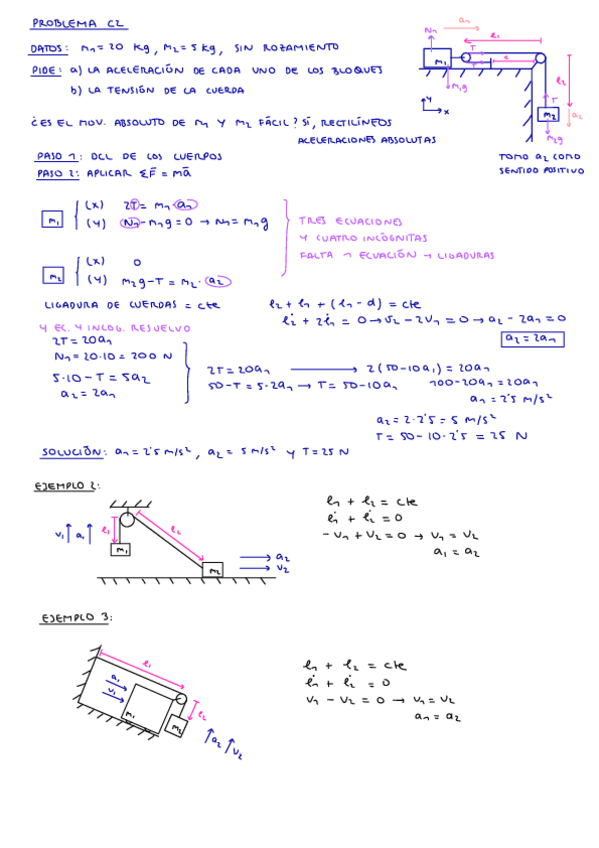 PROBLEMA C2
DATOS: m1=20 kg, m2=5 kg, SIN ROZAMIENTO
PIDE: a) LA ACELERACIÓN DE CADA UNO DE LOS BLOQUES
b) LA TENSIÓN DE LA CUERDA
¿ES EL MOV. ABSOLUTO DE M1 Y M2 FÁCIL? SÍ, RECTILÍNEOS
ACELERACIONES ABSOLUTAS
N1
a1
l1
T
T
d
m1
m1g
l2
T
m2
a2
m2g
y
x
TOMO a2 COMO
SENTIDO POSITIVO
PASO 1: DCL DE LOS CUERPOS
PASO 2: APLICAR ΣF̄ = mā
m1
(X) 2T = m1·a1
(Y) N1-m1g=0 → N1=m1g
m2
(X) 0
(Y) m2g-T = m2·a2
TRES ECUACIONES
Y CUATRO INCÓGNITAS
FALTA 1 ECUACIÓN → LIGADURAS
LIGADURA DE CUERDAS = cte
l2 + l1 + (l1 - d) = cte
l̇2 + 2l̇1 = 0 → v2 - 2v1 = 0 → a2 - 2a1 = 0
a2 = 2a1
4 EC. 4 INCOG. RESUELVO
2T = 20a1
N1 = 20·10 = 200 N
5·10 - T = 5a2
a2 = 2a1
2T = 20a1 → 2(50-10a1) = 20a1
50-T = 5·2a1 → T = 50-10a1
100-20a1 = 20a1
a1 = 2'5 m/s²
a2 = 2·2'5 = 5 m/s²
T = 50 - 10·2'5 = 25 N
SOLUCIÓN: a1 = 2'5 m/s², a2 = 5 m/s² y T=25 N
EJEMPLO 2:
v1 a1 l1
l2
m1
m2
a2
v2
l1 + l2 = cte
l̇1 + l̇2 = 0
-v1 + v2 = 0 → v1 = v2
a1 = a2
EJEMPLO 3:
l1
a1
v1
m1
l2
m2
a2 v2
l1 + l2 = cte
l̇1 + l̇2 = 0
v1 - v2 = 0 → v1 = v2
a1 = a2